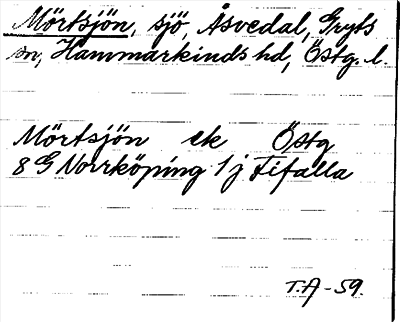 Mörtsjön, sjö, Åsvedal, Gryts
sn, Hammarkinds hd, Östg. l.
Mörtsjön ek Östg
8 G Norrköping 1 j Fifalla
T.A-59.